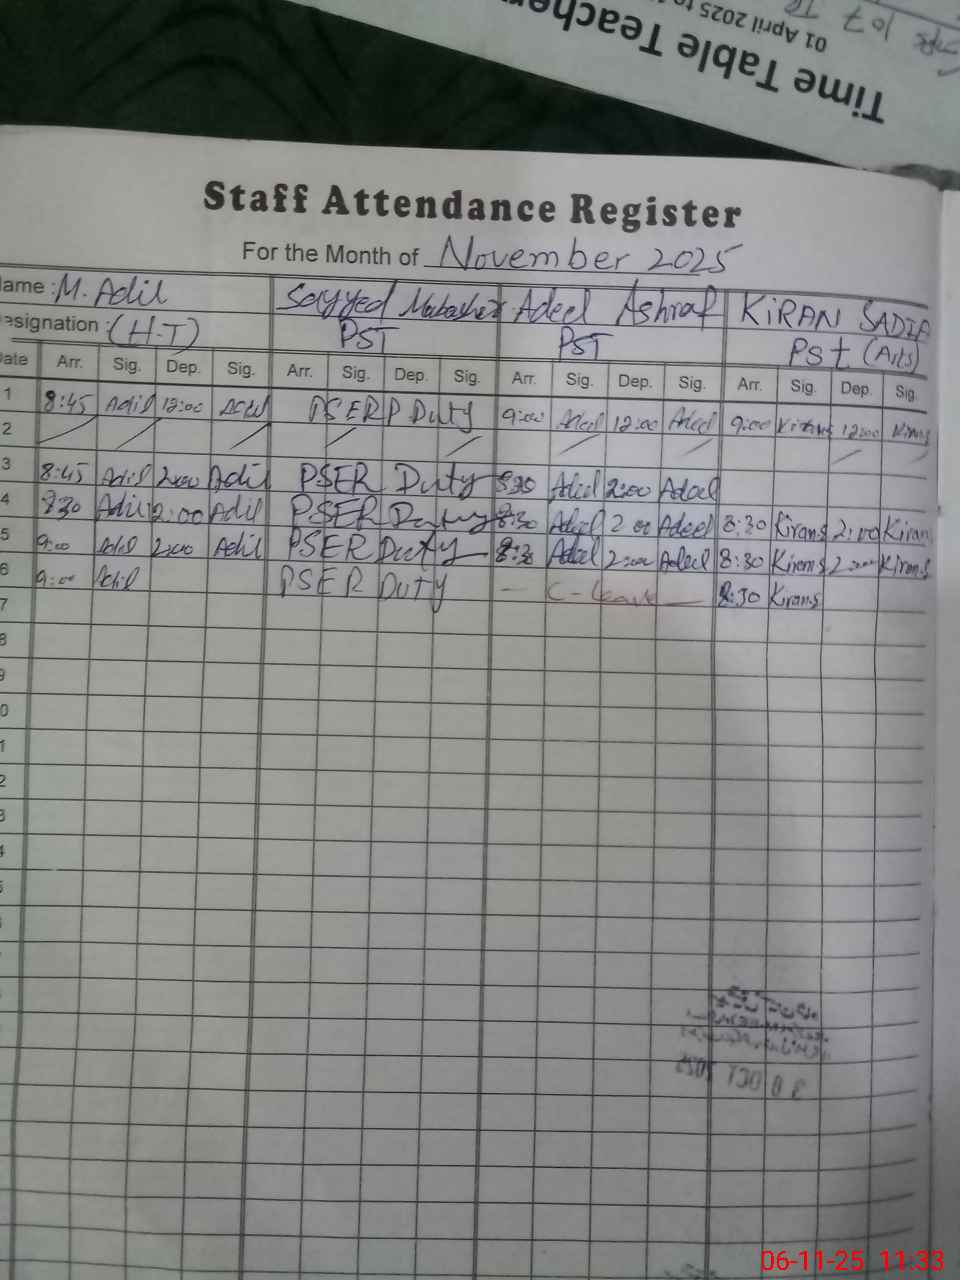 Time Table Teacher
01 April 2025 to
107
Staff Attendance Register
For the Month of November 2025
ame : M. Adil Sayyed Adeel Ashraf KIRAN SADIA
esignation : (H.T) PST PST PSt (Arts)
ate Arr. Sig. Dep. Sig. Arr. Sig. Dep. Sig. Arr. Sig. Dep. Sig. Arr. Sig. Dep. Sig.
1 8:45 Adil 12:00 Adil PSERP Duty 9:00 Adeel 12:00 Adeel 9:00 Kirans 12:00 Kirans
2
3 8:45 Adil 2:00 Adil PSER Duty 8:30 Adeel 2:00 Adeel
4 830 Adil 2:00 Adil PSER Duty 8:30 Adeel 2:00 Adeel 8:30 Kirans 2:00 Kirans
5 9:00 Adil 2:00 Adil PSER Duty 8:30 Adeel 2:00 Adeel 8:30 Kirans 2:00 Kirans
6 9:00 Adil PSER DUTY — C-leave — 8:30 Kirans
7
8
9
0
1
2
3
4
5
30 OCT 2025
06-11-25 11:33